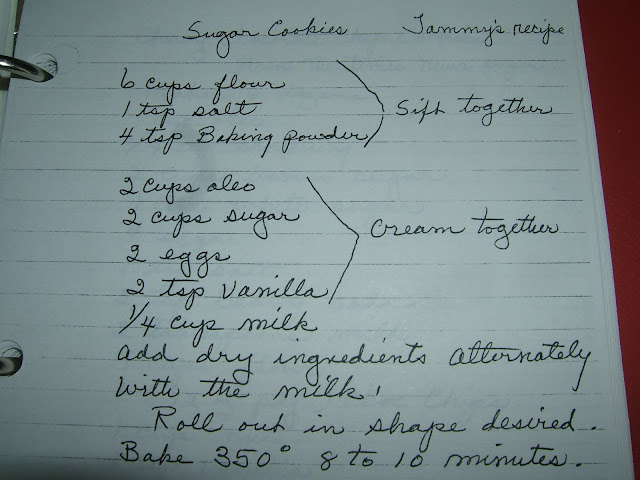 Sugar Cookies Tammy's recipe
6 cups flour
1 tsp salt
4 tsp Baking powder
Sift together
2 cups oleo
2 cups sugar
2 eggs
2 tsp Vanilla
Cream together
1/4 cup milk
add dry ingredients alternately
with the milk.
Roll out in shape desired.
Bake 350° 8 to 10 minutes.